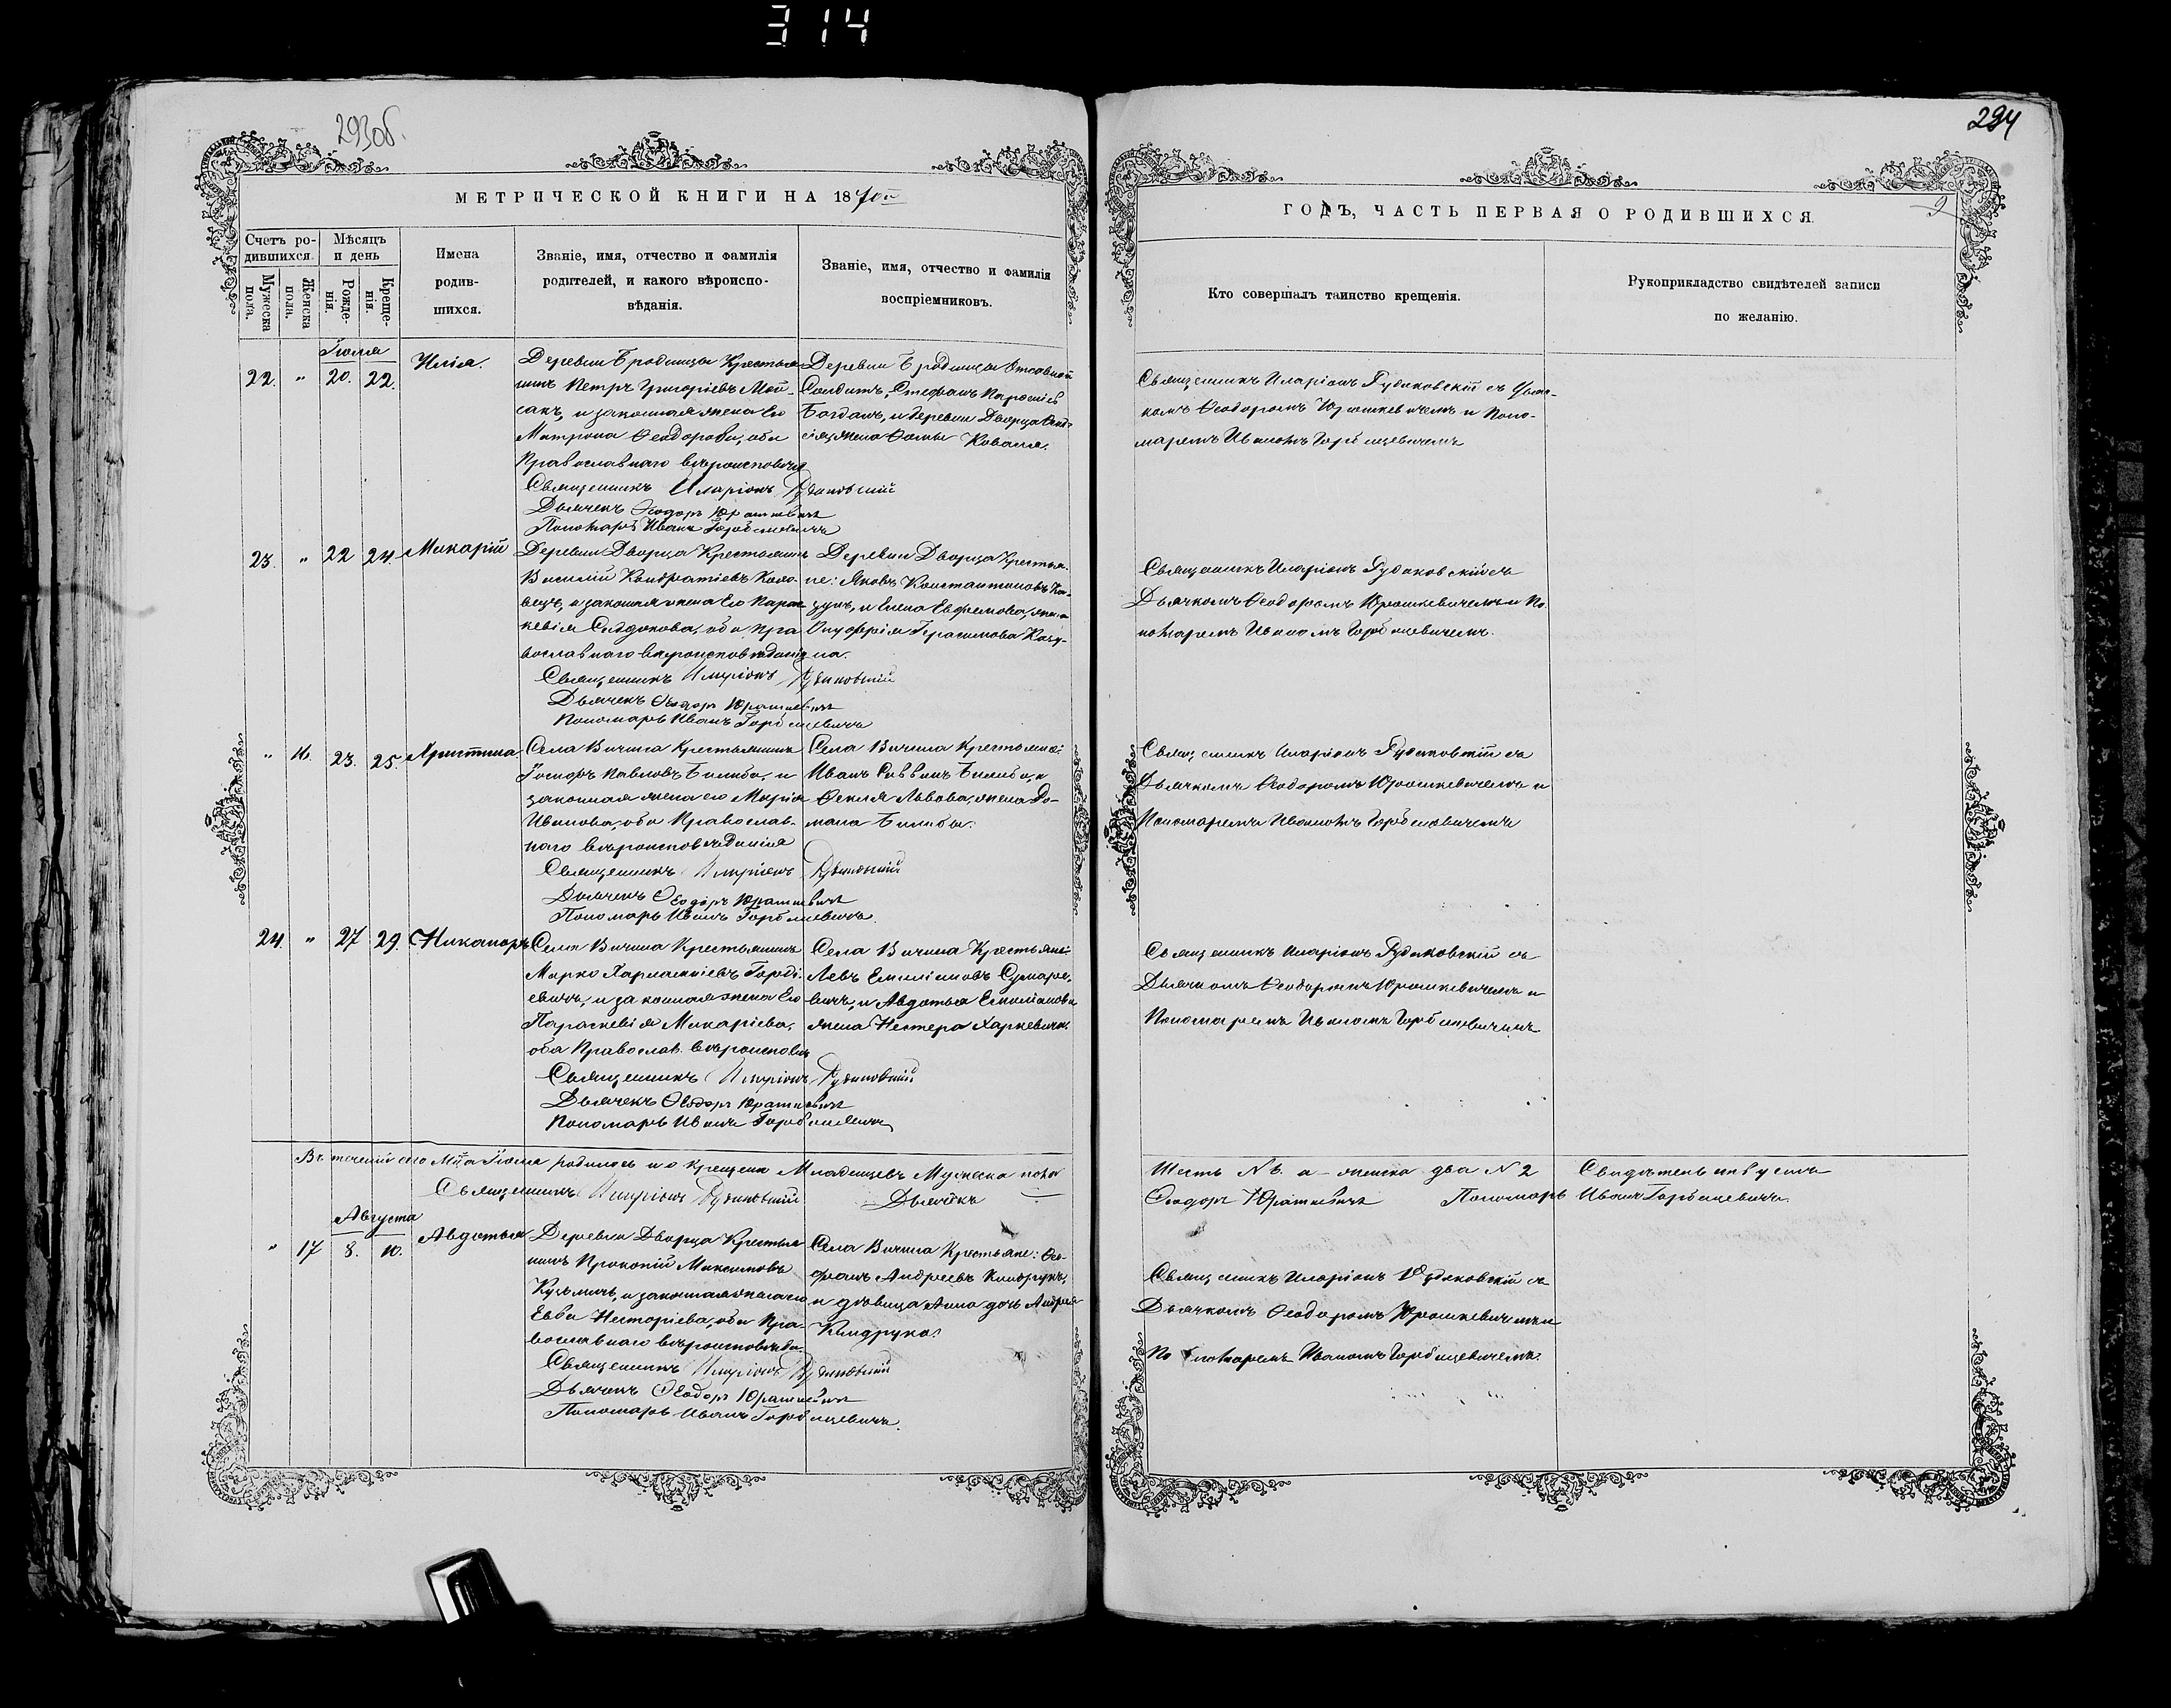 314
293об.
294
МЕТРИЧЕСКОЙ КНИГИ НА 1870й
Счетъ ро-
дившихся.
Мужеска
пола.
Женска
пола.
Мѣсяцъ
и день
Рожде-
нія.
Креще-
нія.
Имена
родив-
шихся.
Званіе, имя, отчество и фамилія
родителей, и какого вѣроиспо-
вѣданія.
Званіе, имя, отчество и фамилія
воспріемниковъ.
Іюля
22. " 20. 22. Илія.
Деревни Бродницы Крестья-
нинъ Петръ Григоріевъ Мой-
сакъ, и законная жена Его
Матрона Феодорова, оба
Православнаго вѣроисповѣд
Священникъ Иларіонъ
Дьячекъ Феодоръ Юрашкевичъ
Пономарь Иванъ Горбацевичъ
Деревни Бродница Отставной
Солдатъ, Стефанъ
Богданъ, и деревни Дворца
жена Фомы Коваля.
23. " 22 24. Макарій
Деревни Дворца Крестьянинъ
Василій Кондратіевъ
вецъ, и законная жена Его Парас-
кевія оба Пра
вославнаго вѣроисповѣданія
Священникъ Иларіонъ
Дьячекъ Феодоръ Юрашкевичъ
Пономарь Иванъ Горбацевичъ
Деревни Дворца Крестья-
не: Яковъ Константиновъ Ка-
зунъ, и Елена Евфемова, жена
Онуфрія Герасимова Казу-
на.
" 16. 23. 25. Христина
Села Вичина Крестьянинъ
Павловъ и
законная жена его Марія
Иванова, оба Православ-
наго вѣроисповѣданія
Священникъ Иларіонъ
Дьячекъ Феодоръ Юрашкевичъ
Пономарь Иванъ Горбацевичъ
Села Вичина Крестьяне:
Иванъ Саввинъ и
Фекля Львова, жена Ро-
мана
24. " 27 29. Никаноръ
Села Вичина Крестьянинъ
Марко Харлампіевъ Горді-
евичъ, и законная жена Его
Параскевія Макаріева,
оба Православ. вѣроисповѣд
Священникъ Иларіонъ
Дьячекъ Феодоръ Юрашкевичъ
Пономарь Иванъ Горбацевичъ
Села Вичина Крестьяне:
Левъ Емиліановъ
и Авдотья Емиліанова
жена Нестера Харкевича
Въ теченіи сего Мца Іюля родилось и окрещено Младенцевъ Мужеска пола
Священникъ Иларіонъ Дьячекъ
Августа
" 17 8. 10. Авдотья
Деревни Дворца Крестья
нинъ Прокопій Максимовъ
Кузьмичъ, и законная жена его
Евва Несторіева, оба Пра-
вославнаго вѣроисповѣда.
Священникъ Иларіонъ
Дьячекъ Феодоръ Юрашкевичъ
Пономарь Иванъ Горбацевичъ.
Села Вичина Крестьяне:
Андреевъ Кондрукъ,
и дѣвица Анна дочь Андрея
Кондрука.
ГОДЪ, ЧАСТЬ ПЕРВАЯ О РОДИВШИХСЯ.
9
Кто совершалъ таинство крещенія.
Рукоприкладство свидѣтелей записи
по желанію.
Священникъ Иларіонъ съ Дьяч-
комъ Феодоромъ Юрашкевичемъ и Поно-
маремъ Иваномъ Горбацевичемъ
Священникъ Иларіонъ съ
Дьячкомъ Феодоромъ Юрашкевичемъ и По
номаремъ Иваномъ Горбацевичемъ.
Священникъ Иларіонъ съ
Дьячкомъ Феодоромъ Юрашкевичемъ и
Пономаремъ Иваномъ Горбацевичемъ
Священникъ Иларіонъ съ
Дьячкомъ Феодоромъ Юрашкевичемъ и
Пономаремъ Иваномъ Горбацевичемъ
Шесть N 6. а женска два N 2 Свидѣтельствуемъ
Феодоръ Юрашкевичъ Пономарь Иванъ Горбацевичъ.
Священникъ Иларіонъ съ
Дьячкомъ Феодоромъ Юрашкевичемъ и
Пономаремъ Иваномъ Горбацевичемъ.